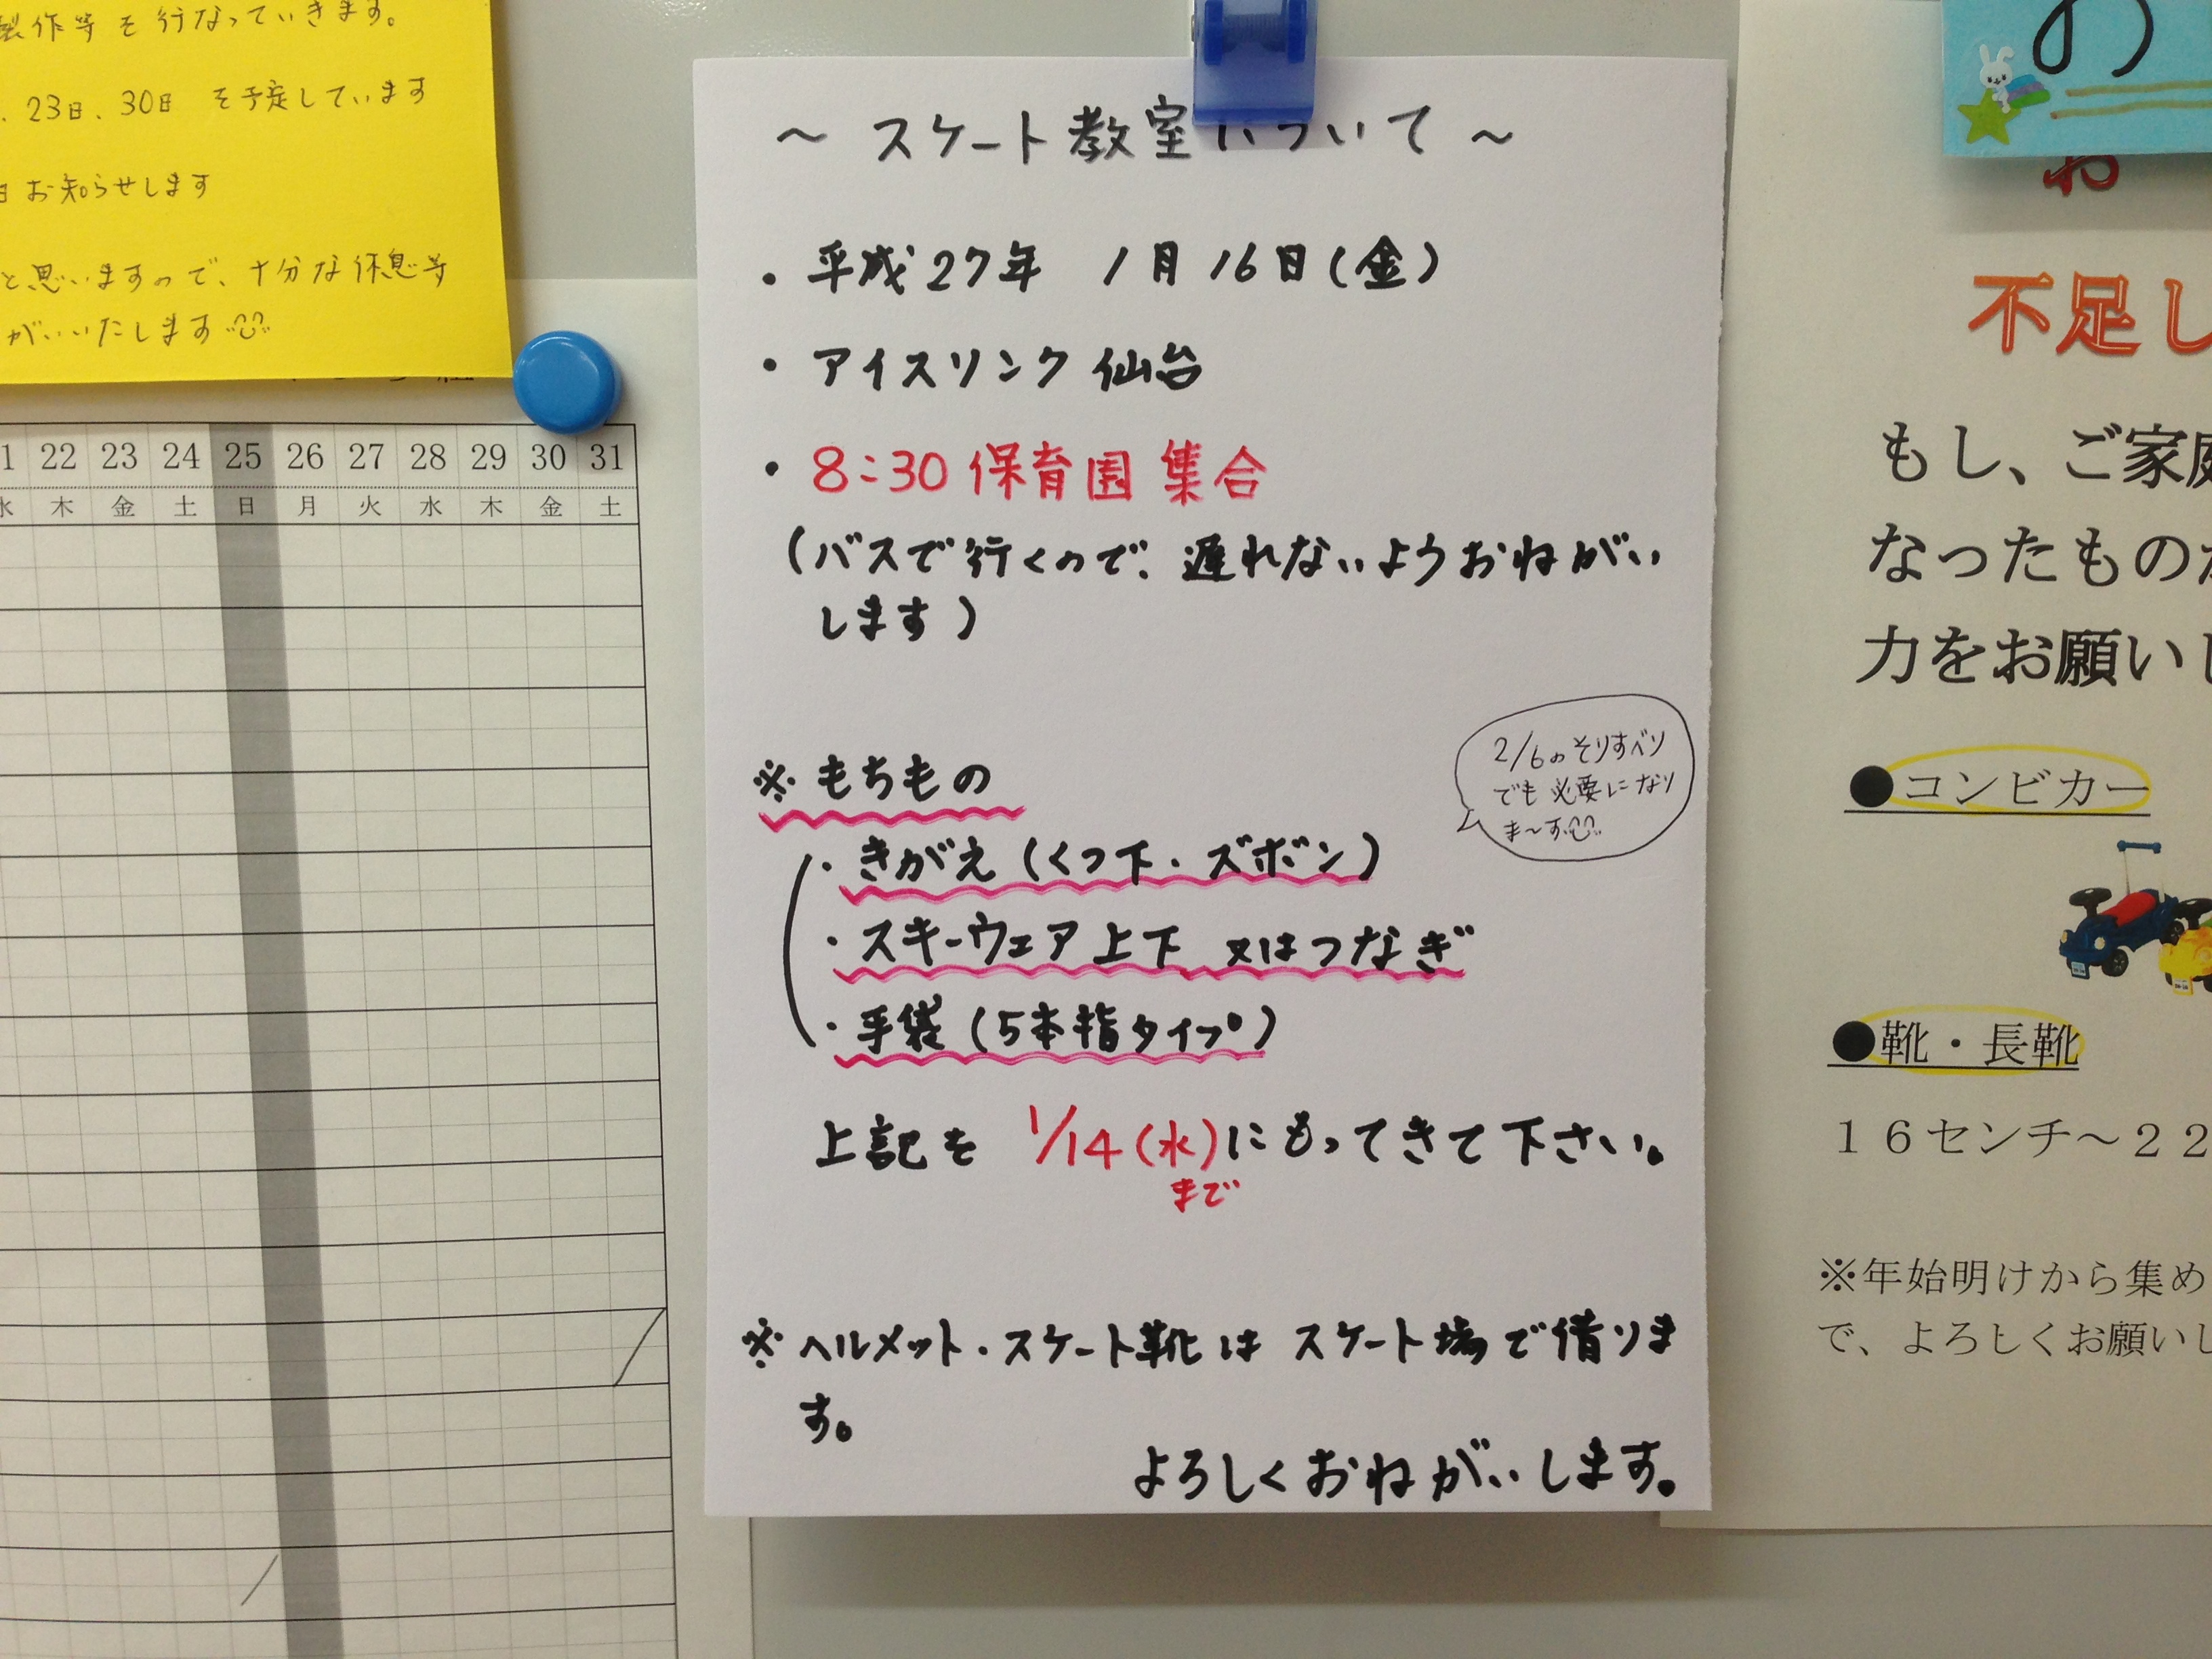 製作等を行なっていきます。
23日、30日 を予定しています
お知らせします
と思いますので、十分な休息等
がいいたします
22 23 24 25 26 27 28 29 30 31
水 木 金 土 日 月 火 水 木 金 土
～ スケート教室について ～
・平成27年 1月16日(金)
・アイスリンク仙台
・8:30 保育園 集合
(バスで行くので、遅れないようおねがい
します)
※もちもの
2/6のそりすべり
でも必要になり
ま～す
・きがえ(くつ下・ズボン)
・スキーウェア上下 又はつなぎ
・手袋(5本指タイプ)
上記を 1/14(水)にもってきて下さい。
まで
※ヘルメット・スケート靴は スケート場で借りま
す。
よろしくおねがいします。
の
お
不足し
もし、ご家庭
なったものが
力をお願いし
●コンビカー
●靴・長靴
１６センチ～２２
※年始明けから集め
で、よろしくお願いし